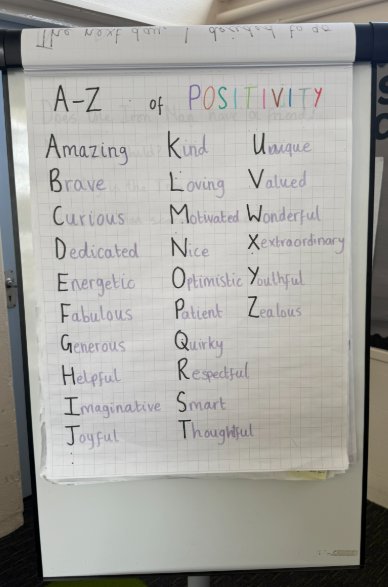 The next day, I decided to go
A-Z of POSITIVITY
Amazing
Brave
Curious
Dedicated
Energetic
Fabulous
Generous
Helpful
Imaginative
Joyful
Kind
Loving
Motivated
Nice
Optimistic
Patient
Quirky
Respectful
Smart
Thoughtful
Unique
Valued
Wonderful
Xextraordinary
Youthful
Zealous